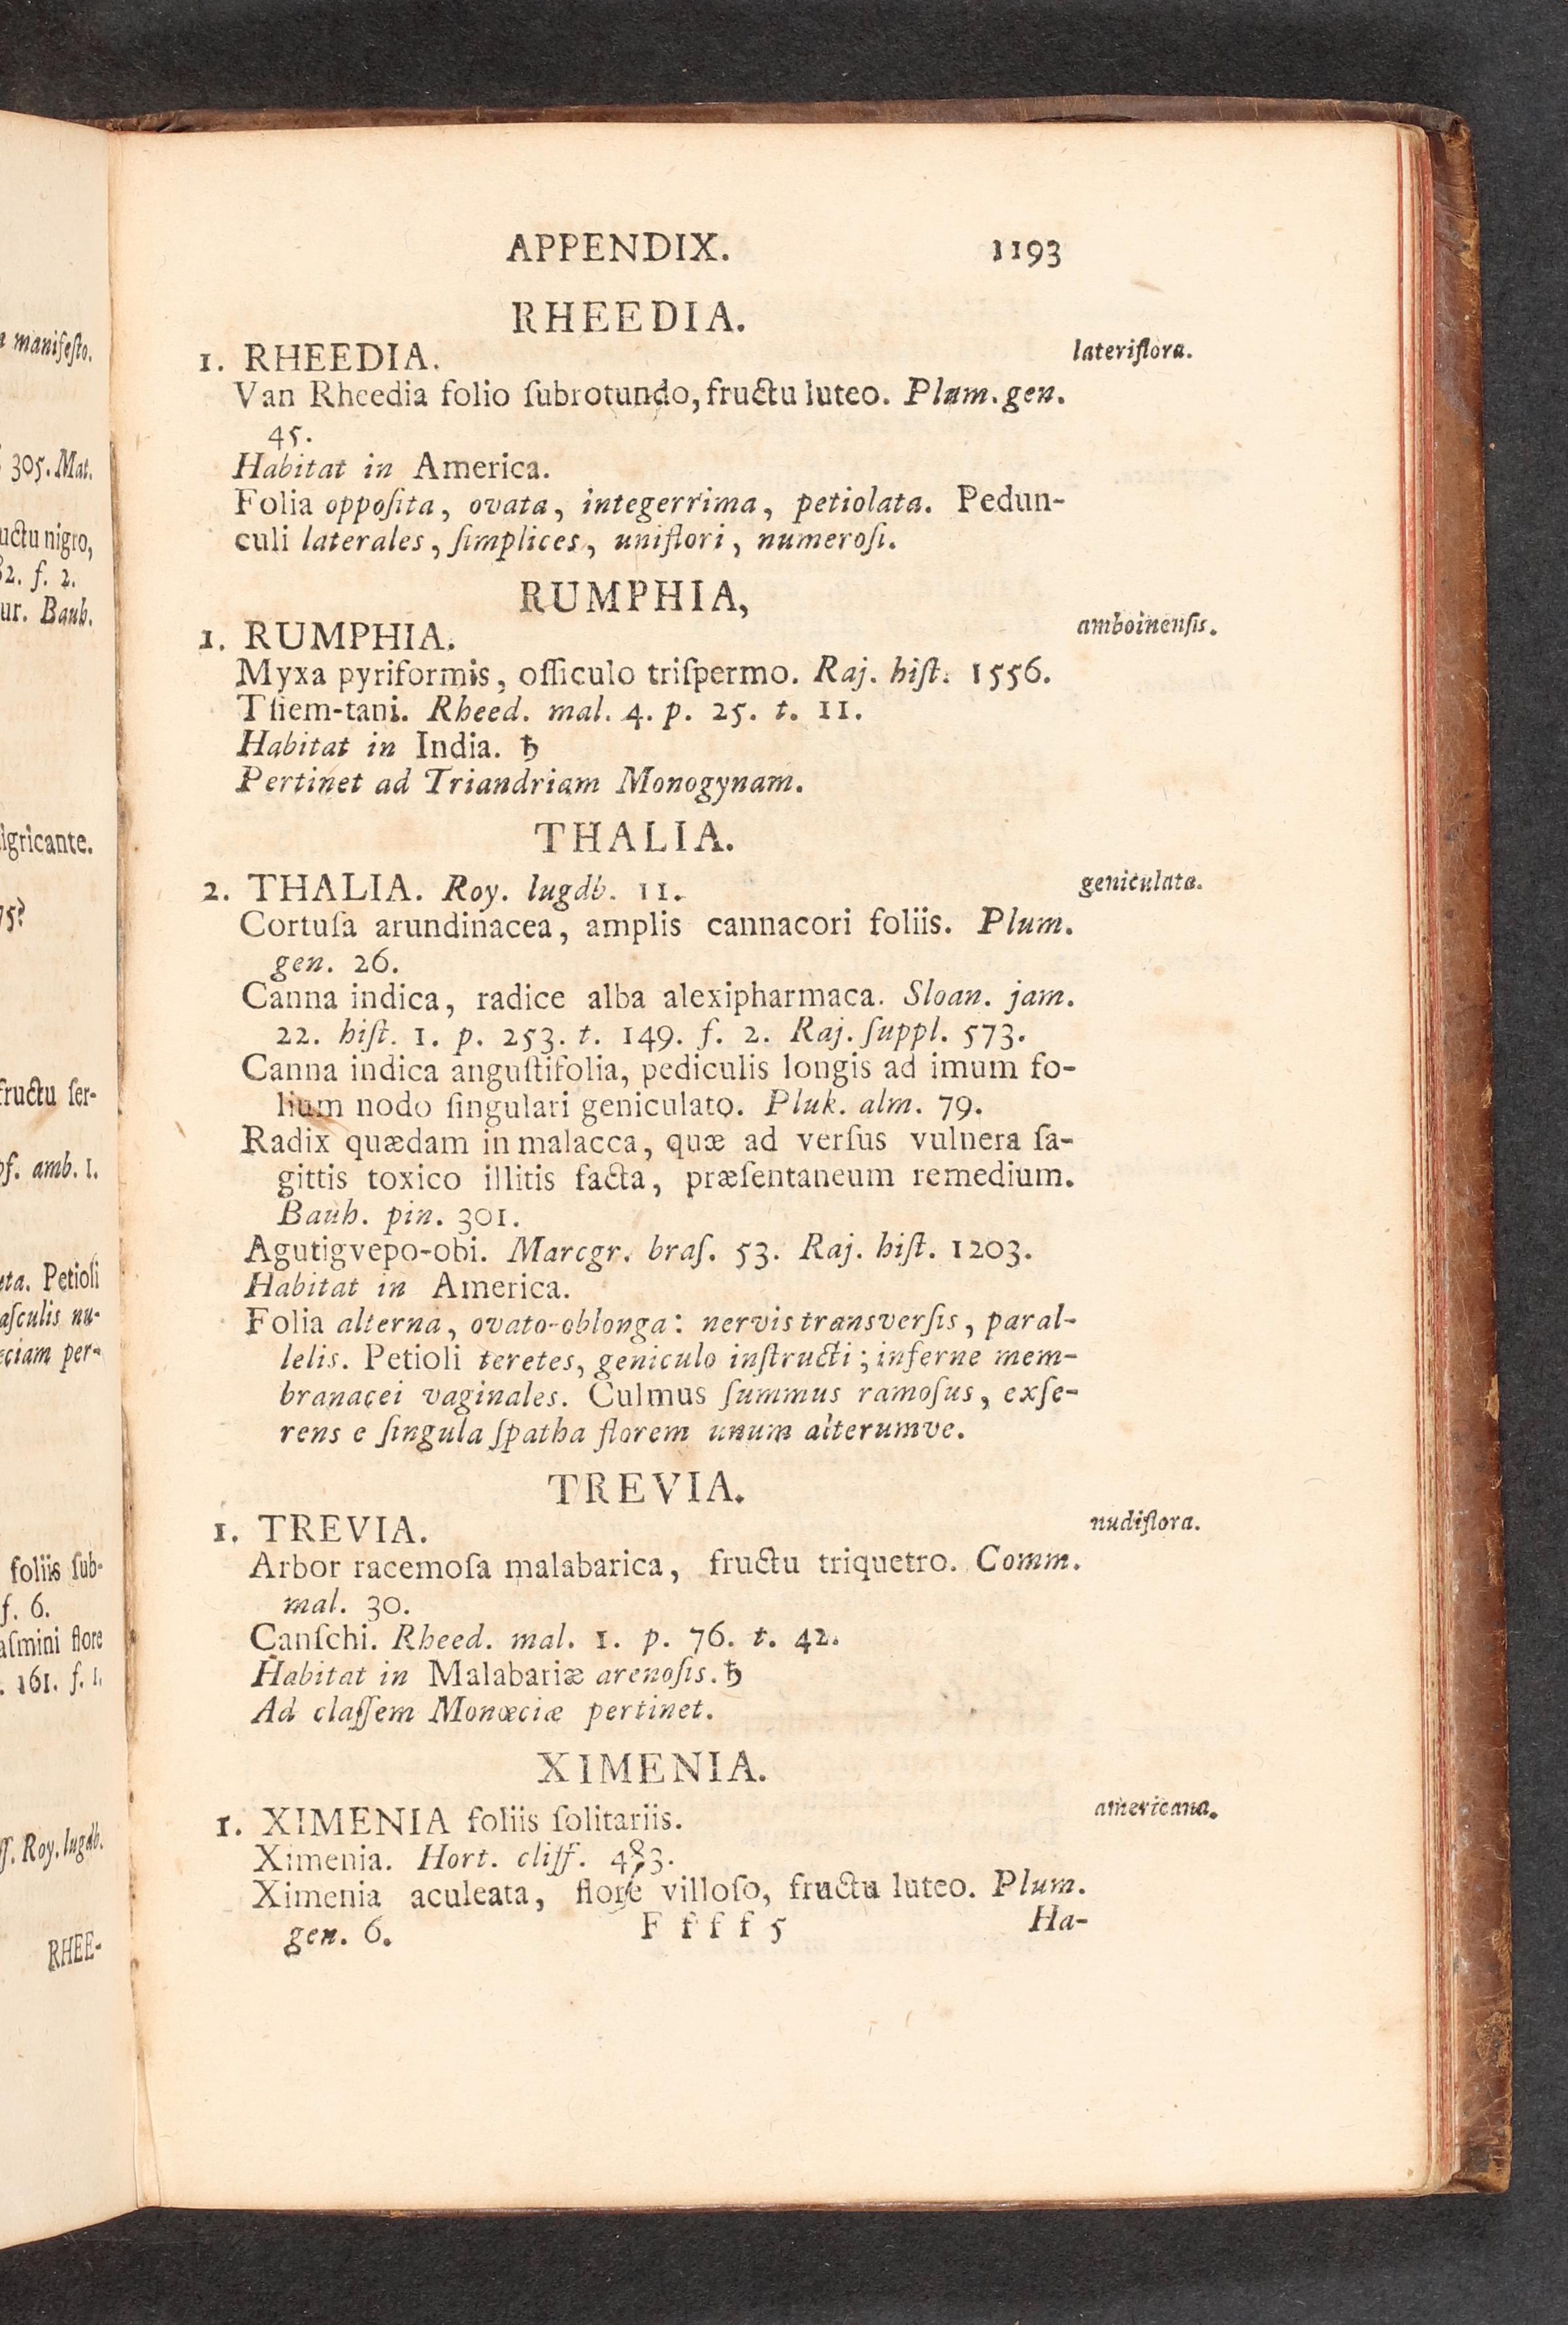 n manifeſto.
305. Mat.
uctu nigro,
82. f. 2.
ur. Bauh.
igricante.
75?
fructu ſer-
oſ. amb. 1.
eta. Petioli
aſculis nu-
eciam per-
foliis ſub-
f. 6.
aſmini flore
. 161. f. 1.
ff. Roy. lugdb.
RHEE-
APPENDIX. 1193
RHEEDIA.
1. RHEEDIA. lateriflora.
Van Rheedia folio ſubrotundo, fructu luteo. Plum. gen.
45.
Habitat in America.
Folia oppoſita, ovata, integerrima, petiolata. Pedun-
culi laterales, ſimplices, uniflori, numeroſi.
RUMPHIA,
1. RUMPHIA. amboinenſis.
Myxa pyriformis, oſſiculo triſpermo. Raj. hiſt. 1556.
Tſiem-tani. Rheed. mal. 4. p. 25. t. 11.
Habitat in India. ♄
Pertinet ad Triandriam Monogynam.
THALIA.
2. THALIA. Roy. lugdb. 11. geniculata.
Cortuſa arundinacea, amplis cannacori foliis. Plum.
gen. 26.
Canna indica, radice alba alexipharmaca. Sloan. jam.
22. hiſt. 1. p. 253. t. 149. f. 2. Raj. ſuppl. 573.
Canna indica anguſtifolia, pediculis longis ad imum fo-
lium nodo ſingulari geniculato. Pluk. alm. 79.
Radix quædam in malacca, quæ ad verſus vulnera ſa-
gittis toxico illitis facta, præſentaneum remedium.
Bauh. pin. 301.
Agutigvepo-obi. Marcgr. braſ. 53. Raj. hiſt. 1203.
Habitat in America.
Folia alterna, ovato-oblonga: nervis transverſis, paral-
lelis. Petioli teretes, geniculo inſtructi; inferne mem-
branacei vaginales. Culmus ſummus ramoſus, exſe-
rens e ſingula ſpatha florem unum alterumve.
TREVIA.
1. TREVIA. nudiflora.
Arbor racemoſa malabarica, fructu triquetro. Comm.
mal. 30.
Canſchi. Rheed. mal. 1. p. 76. t. 42.
Habitat in Malabariæ arenoſis. ♄
Ad claſſem Monœciæ pertinet.
XIMENIA.
1. XIMENIA foliis ſolitariis. americana.
Ximenia. Hort. cliff. 483.
Ximenia aculeata, flore villoſo, fructu luteo. Plum.
gen. 6. F f f f 5 Ha-